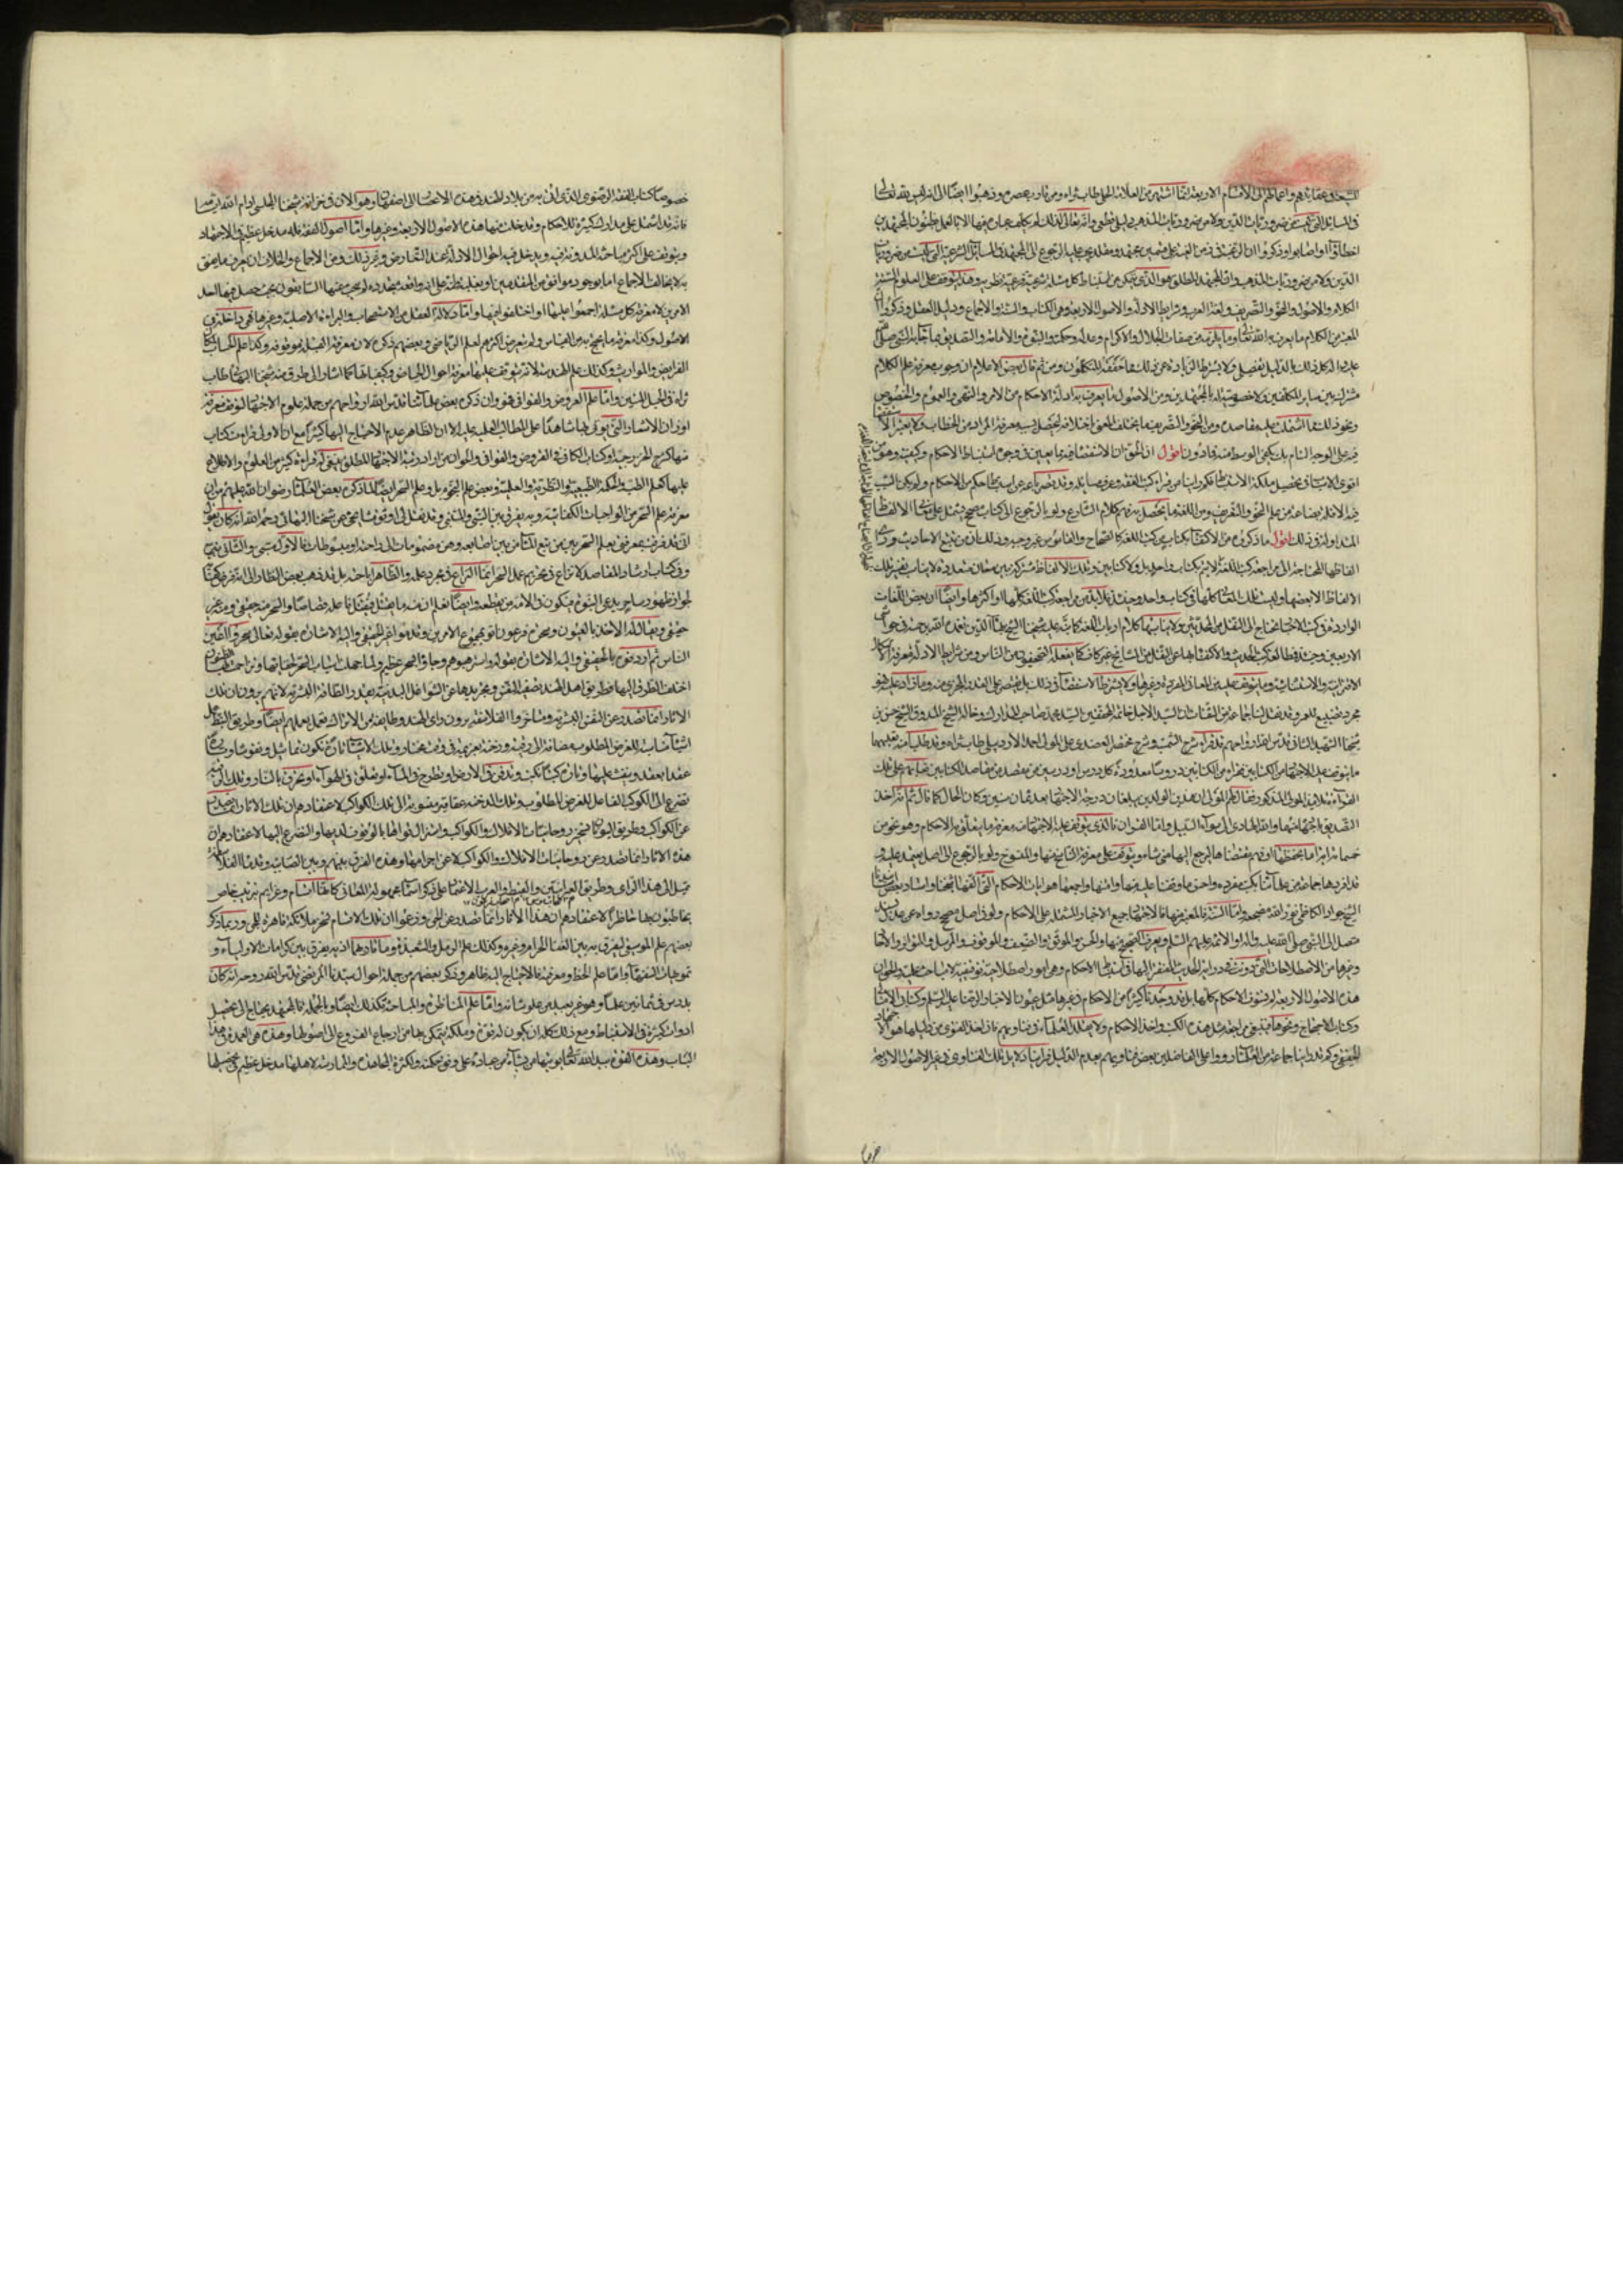 في المسائل التي ليست من ضروريات الدين ولا من ضروريات المذهب دليل قطعي وانه تعالى لذلك لم يكلف عباده فيها الا بالعمل بظنون المجتهدين
اخطاؤا او اصابوا وذكروا ان الرعية في زمن الغيبة على قسمين مجتهد ومقلد يجب عليه الرجوع الى المجتهد في المسائل الشرعية التي ليست من ضروريات
الدين ولا من ضروريات المذهب وان المجتهد المطلق هو الذي يتمكن من استنباط كل مسئلة شرعية فرعية نظرية وهذا يتوقف على العلوم الستة
الكلام والاصول والنحو والتصريف ولغة العرب وشرايط الادلة والاصول الاربعة وهي الكتاب والسنة والاجماع ودليل العقل وذكروا ان
المعتبر من الكلام ما يعرف به الله تعالى وما يلزمه من صفات الجلال والاكرام وعدله وحكمته والنبوة والامامة والتصديق بما جاء به النبي صلى الله
عليه واله كل ذلك بالدليل التفصيلي ولا يشترط الزيادة عن ذلك مما حققه المتكلمون ومن ثم قال بعض الاعلام ان وجوب معرفة علم الكلام
مشترك بين ساير المكلفين ولا خصوصية له بالمجتهدين ومن الاصول ما يعرف به ادلة الاحكام من الامر والنهي والعموم والخصوص
ونحو ذلك مما اشتملت عليه مقاصده ومن النحو والتصريف ما يختلف المعنى باختلافه ليحصل بسببه معرفة المراد من الخطاب ولا يعتبر الاستقصاء
فيه على الوجه التام بل يكفي الوسط منه فما دون اقول ان الحق ان الاستقصاء فيه مما يعين في وجوه استنباط الاحكام وكيف وهو من
اقوى الاسباب في تحصيل ملكة الاستنباط فكم راينا من قرأ كتب الفقه وعرف مسايله وقد قصر باعه عن استنباط حكم من الاحكام ولم يكن السبب
فيه الا قلة بضاعته من علم النحو والتصريف ومن اللغة ما يحصل به فهم كلام الشارع ولو بالرجوع الى كتاب صحيح يشتمل على معاني الالفاظ
المتداولة في ذلك اقول ما ذكروه من الاكتفاء بكتاب من كتب اللغة كالصحاح والقاموس غير وجيه وذلك ان من تتبع الاحاديث وراى
الفاظها المحتاجة الى مراجعة كتب اللغة لا يتم بكتاب واحد بل ولا كتابين وتلك الالفاظ مشتركة بين معان متعددة لا يناسب تفسير تلك
الالفاظ الا بعضها وليست تلك المعاني كلها في كتاب واحد وحينئذ فلا بد من مراجعة كتب اللغة كلها او اكثرها وايضا ان بعض اللغات
الواردة في كتب الاخبار تحتاج الى النقل من المحدثين ولا يناسبها كلام ارباب اللغة كما نبه عليه شيخنا الشيخ بهاء الدين تغمده الله برحمته في حواشي
الاربعين وحينئذ فمطالعة كتب الحديث والاكتفاء بها عن النقل من المشايخ غير كاف كما يفعله التحفيون من الناس ومن شرايط الادلة معرفة الاشكال
الاقترانية والاستثنائية وما يتوقف عليه من المعاني المفردة وغيرها ولا يشترط الاستقصاء في ذلك بل يقتصر على القدر المجزي منه وما زاد عليه فهو
مجرد تضييع للعمر وقد نقل لنا جماعة من الثقات ان السيد الاجل خاتمة المحققين السيد محمد صاحب المدارك وخاله الشيخ المدقق الشيخ حسن بن
شيخنا الشهيد الثاني قدس الله ارواحهم قد قرأه شرح الشمسية وشرح مختصر العضدي على المولى احمد الاردبيلي طاب ثراه وقد طلبا منه تعليمهما
ما يتوقف عليه الاجتهاد من الكتابين فقرءا من الكتابين دروسا معدودة كل درس او درسين من مقصد من مقاصد الكتابين
القراءة تلاميذ المولى المذكور فقال لهم المولى ان هذين الولدين يبلغان درجة الاجتهاد بعد ثمان سنين وكان الحال كما قال ثم انه اخذ
التصديق باجتهاده منهما والله الهادي الى سواء السبيل واما القران فالذي يتوقف عليه الاجتهاد منه معرفة ما يتعلق به الاحكام وهو نحو من
خمسمائة اية اما بحفظها او فهم مقتضاها ليرجع اليها متى شاء ويتوقف على معرفة الناسخ منها والمنسوخ ولو بالرجوع الى اصل يعتمد عليه و
قد افردها جماعة من علمائنا بكتب مفردة واحسن ما وقفنا عليه منها وامتنها واجمعها هو ايات الاحكام التي الفها شيخنا واستاد بعض اساتيدنا
الشيخ جواد الكاظمي نور الله مضجعه واما السنة فالمعتبر منها في الاجتهاد جميع الاخبار المشتملة على الاحكام ولو في اصل صحيح رواه عن عدل بسند
متصل الى النبي صلى الله عليه واله او الائمة عليهم السلم ويعرف الصحيح منها والحسن والموثق والضعيف والموقوف والمرسل والمتواتر والاحاد
وغيرها من الاصطلاحات التي دونت في دراية الحديث المفتقر اليها في استنباط الاحكام وهي امور اصطلاحية توقيفية لا مباحث علمية والحق ان
هذه الاصول الاربعة لم تستوف الاحكام كلها بل قد وجدنا كثيرا من الاحكام في غيرها مثل عيون الاخبار الرضا عليه السلم وكتاب الامالي
وكتاب الاحتجاج ونحوها فينبغي مراجعة مثل هذه الكتب واخذ الاحكام ولا يقلد العلماء في فتاويهم فان اخذ الفتوى من دليلها هو الاجتهاد
الحقيقي وكم قد راينا جماعة من العلماء ردوا على الفاضلين بعض فتاويهم بعدم الدليل فراينا دلايل تلك الفتاوى في غير الاصول الاربعة
خصوصا كتاب الفقه الرضوي الذي اتي به من بلاد الهند في هذه الاعصار الى اصفهان وهو الان في خزانة شيخنا المجلسي ادام الله ايامه
فانه قد اشتمل على مدارك كثيرة للاحكام وقد خلت عنها هذه الاصول الاربعة وغيرها واما اصول الفقه فله مدخل عظيم في الاجتهاد
ويتوقف على اكثر مباحثه المدونة فيه ويدخل فيه احوال الادلة عند التعارض وغير ذلك ومن الاجماع والخلاف ان يعرف ما يفتي
به لا يخالف الاجماع اما بوجود موافق من المتقدمين او يغلب ظنه على انه واقعة متجددة لم يبحث عنها السابقون بحيث حصل فيها احد
الامرين لا معرفة كل مسئلة اجمعوا عليها او اختلفوا فيها واما دلالة العقل من الاستصحاب والبراءة الاصلية وغيرها فهي داخلة في
الاصول وكذا معرفة ما يحتج به من القياس ولم يتعرض اكثرهم لعلم الرياضي وبعضهم ذكره لان معرفة القبلة موقوفة وكذا علم الحساب لمكان
الفرايض والمواريث وكذلك علم الهندسة لانه يتوقف عليها معرفة احوال الحياض وكيفياتها كما اشار الى طرق منه شيخنا البهائي طاب
ثراه في الحبل المتين واما علم العروض والقوافي فهو وان ذكره بعض علمائنا قدس الله ارواحهم من جملة علوم الاجتهاد لتوقف معرفة
اوزان الاشعار التي يؤتى بها شاهدا على المطالب العلمية عليه الا ان الظاهر عدم الاحتياج اليها كثيرا مع ان الاولى قراءة كتاب
منها كشرح الخزرجية او كتاب الكافي في العروض والقوافي والحق ان من اراد رتبة الاجتهاد المطلق ينبغي له قراءة كثير من العلوم والاطلاع
عليها كعلم الطب والحكمة الطبيعية والنظرية والعملية وبعض علم النجوم بل وعلم السحر ايضا لما ذكره بعض العلماء رضوان الله عليهم من ان
معرفة علم السحر من الواجبات الكفائية وبه يفرق بين النبي والمتنبي وقد نقل لي اوثق مشايخي عن شيخنا البهائي رحمه الله انه كان يقول
وفي كتاب ارشاد المقاصد لا نزاع في تحريم عمل السحر انما النزاع في مجرد علمه والظاهر اباحته بل قد ذهب بعض النظار الى انه فرض كفاية
لجواز ظهور ساحر يدعي النبوة فيكون في الامة من يقطعه وايضا نعلم ان منه ما يقتل فيقتل فاعله قصاصا والسحر منه حقيقي ومنه غير
حقيقي ويقال له الاخذ بالعيون وسحرة فرعون اتوا بمجموع الامرين وقدموا غير الحقيقي واليه الاشارة بقوله تعالى سحروا اعين
الناس ثم اردفوه بالحقيقي واليه الاشارة بقوله واسترهبوهم وجاؤا بسحر عظيم ولما جهلت اسباب السحر لخفائها وتزاحمت الظنون
اختلفت الطرق اليها فطريق اهل الهند تصفية النفس وتجريدها عن الشواغل البدنية بقدر الطاقة البشرية لانهم يرون ان تلك
الاثار انما تصدر عن النفس البشرية ومتاخروا الفلاسفة يرون راى الهند وطايفة من الاتراك تعمل بعملهم ايضا وطريق النبط عمل
اشياء مناسبة للغرض المطلوب مضافة الى رقية ودخنة بعزيمة في وقت مختار وتلك الاشياء تارة تكون تماثيل ونقوشا وتارة
عقدا تعقد وينفث عليها وتارة كتبا تكتب وتدفن في الارض او تطرح في الماء او تعلق في الهواء او تحرق بالنار وتلك الرقية
تضرع الى الكوكب الفاعل للغرض المطلوب وتلك الدخنة عقاقير منسوبة الى تلك الكواكب لاعتقادهم ان تلك الاثار انما تصدر
عن الكواكب وطريق اليونان تسخير روحانيات الافلاك والكواكب واستنزال قواها بالوقوف لديها والتضرع اليها لاعتقادهم ان
هذه الاثار انما تصدر عن روحانيات الافلاك والكواكب لا عن اجرامها وهذه الفرق بينهم وبين الصابئة وقدماء الفلاسفة
تميل الى هذا الراى وطريق العبرانيين والقبط والعرب الاعتماد على ذكر اسماء مجهولة المعاني كانها اقسام وعزايم بترتيب خاص
يخاطبون بها حاضرا لاعتقادهم ان هذه الاثار انما تصدر عن الجن وزعموا ان تلك الاقسام تسخر ملائكة قاهرة للجن وربما ذكر
بعضهم علم الموسيقى ليفرق به بين الغناء الحرام وغيره وكذلك علم الرمل والشعبذة وما شاكلها اذ به يفرق بين كرامات الاولياء و
تمويهات السفهاء واما علم الخط ومعرفته فالاحتياج اليه ظاهر وذكر بعضهم من جملة احوال سيدنا المرتضى قدس الله روحه انه كان
يدرس في ثمانين علما وهو غير بعيد من علو شانه واما علم المناظرة والمباحثة فكذلك ايضا وبالجملة فالمجتهد يحتاج الى تحصيل
ادوات كثيرة في الاستنباط ومع ذلك كله ان يكون له قوة وملكة يتمكن بها من ارجاع الفروع الى اصولها وهذه هي العمدة في هذا
الباب وهذه القوة بيد الله تعالى يؤتيها من يشاء من عباده على وفق حكمته ولكثرة المجاهدة والممارسة لاهلها مدخل عظيم في تحصيلها